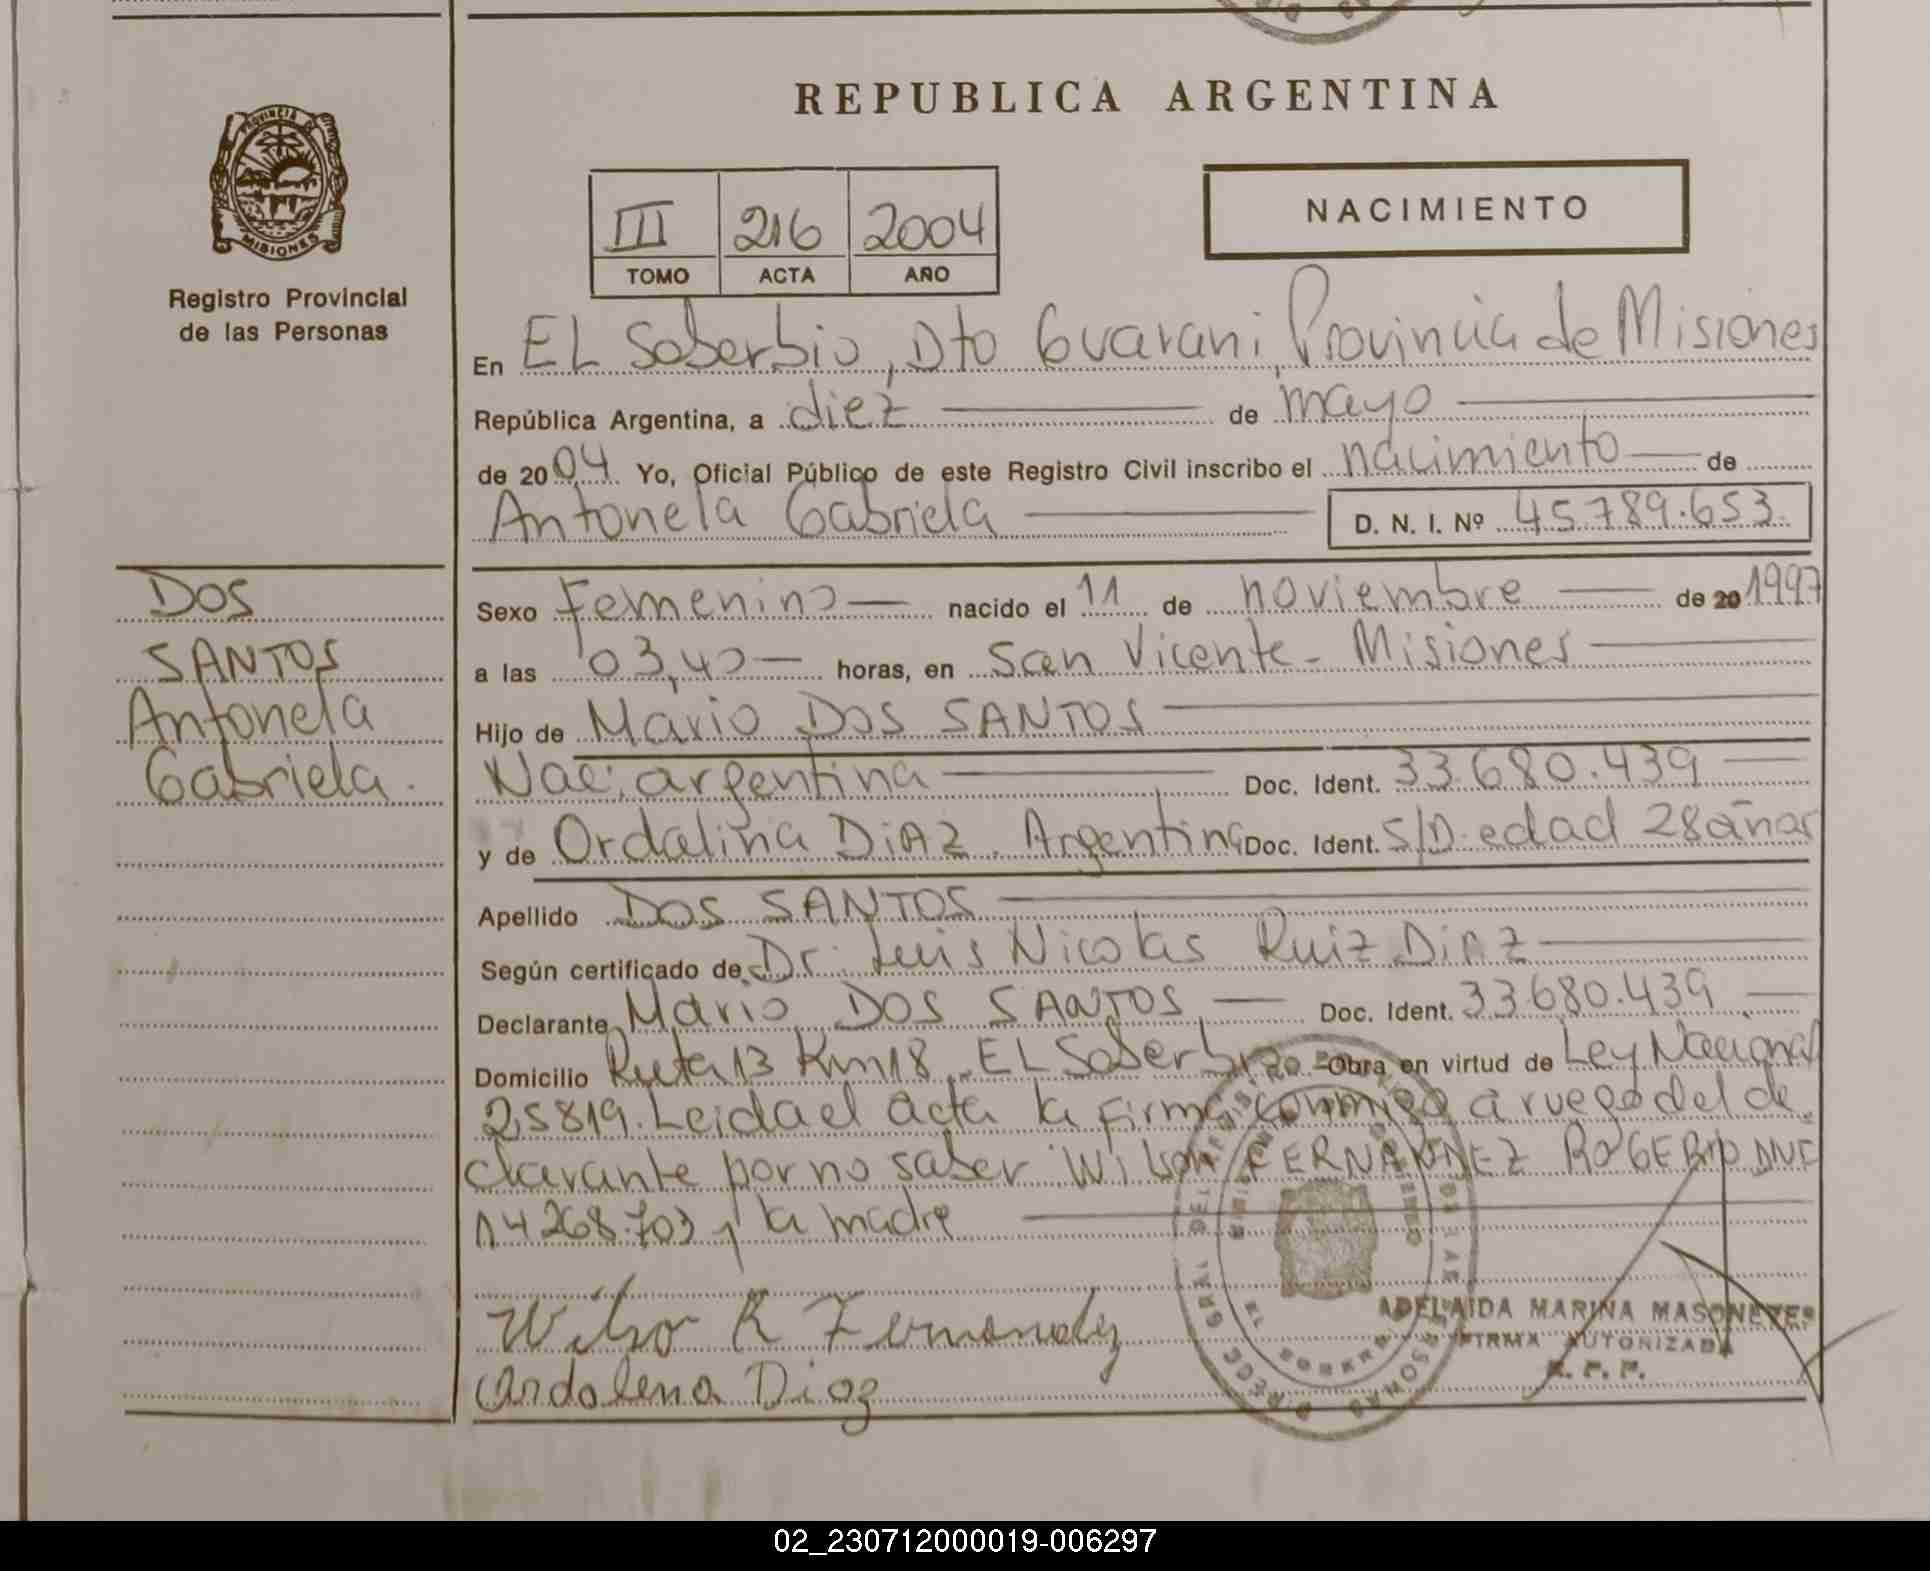 REPUBLICA ARGENTINA
PROVINCIA DE
MISIONES
Registro Provincial
de las Personas
III 216 2004
TOMO ACTA AÑO
NACIMIENTO
En EL Soberbio, Dto Guarani, Provincia de Misiones
República Argentina, a diez de mayo
de 2004 Yo, Oficial Público de este Registro Civil inscribo el nacimiento de
Antonela Gabriela D. N. I. Nº 45.789.653
DOS
SANTOS
Antonela
Gabriela.
Sexo Femenino nacido el 11 de noviembre de 20 1997
a las 03,40 horas, en San Vicente - Misiones
Hijo de Mario DOS SANTOS
Nac: argentina Doc. Ident. 33.680.439
y de Ordalina DiAZ. Argentina Doc. Ident. S/D. edad 28 años
Apellido DOS SANTOS
Según certificado de Dr. Luis Nicolas Ruiz DiAZ
Declarante Mario DOS SANTOS Doc. Ident. 33.680.439
Domicilio Ruta 13 Km 18 EL Soberbio Obra en virtud de Ley Nacional
25819. Leida el acta la firma conmigo a ruego del de
clarante por no saber Wilson FERNANDEZ ROGERIO DNI
14268.703 y la madre
Wilso R Fernandez
ordalena Diaz
ADELAIDA MARINA
FIRMA AUTORIZADA
R. P. P.
02_230712000019-006297